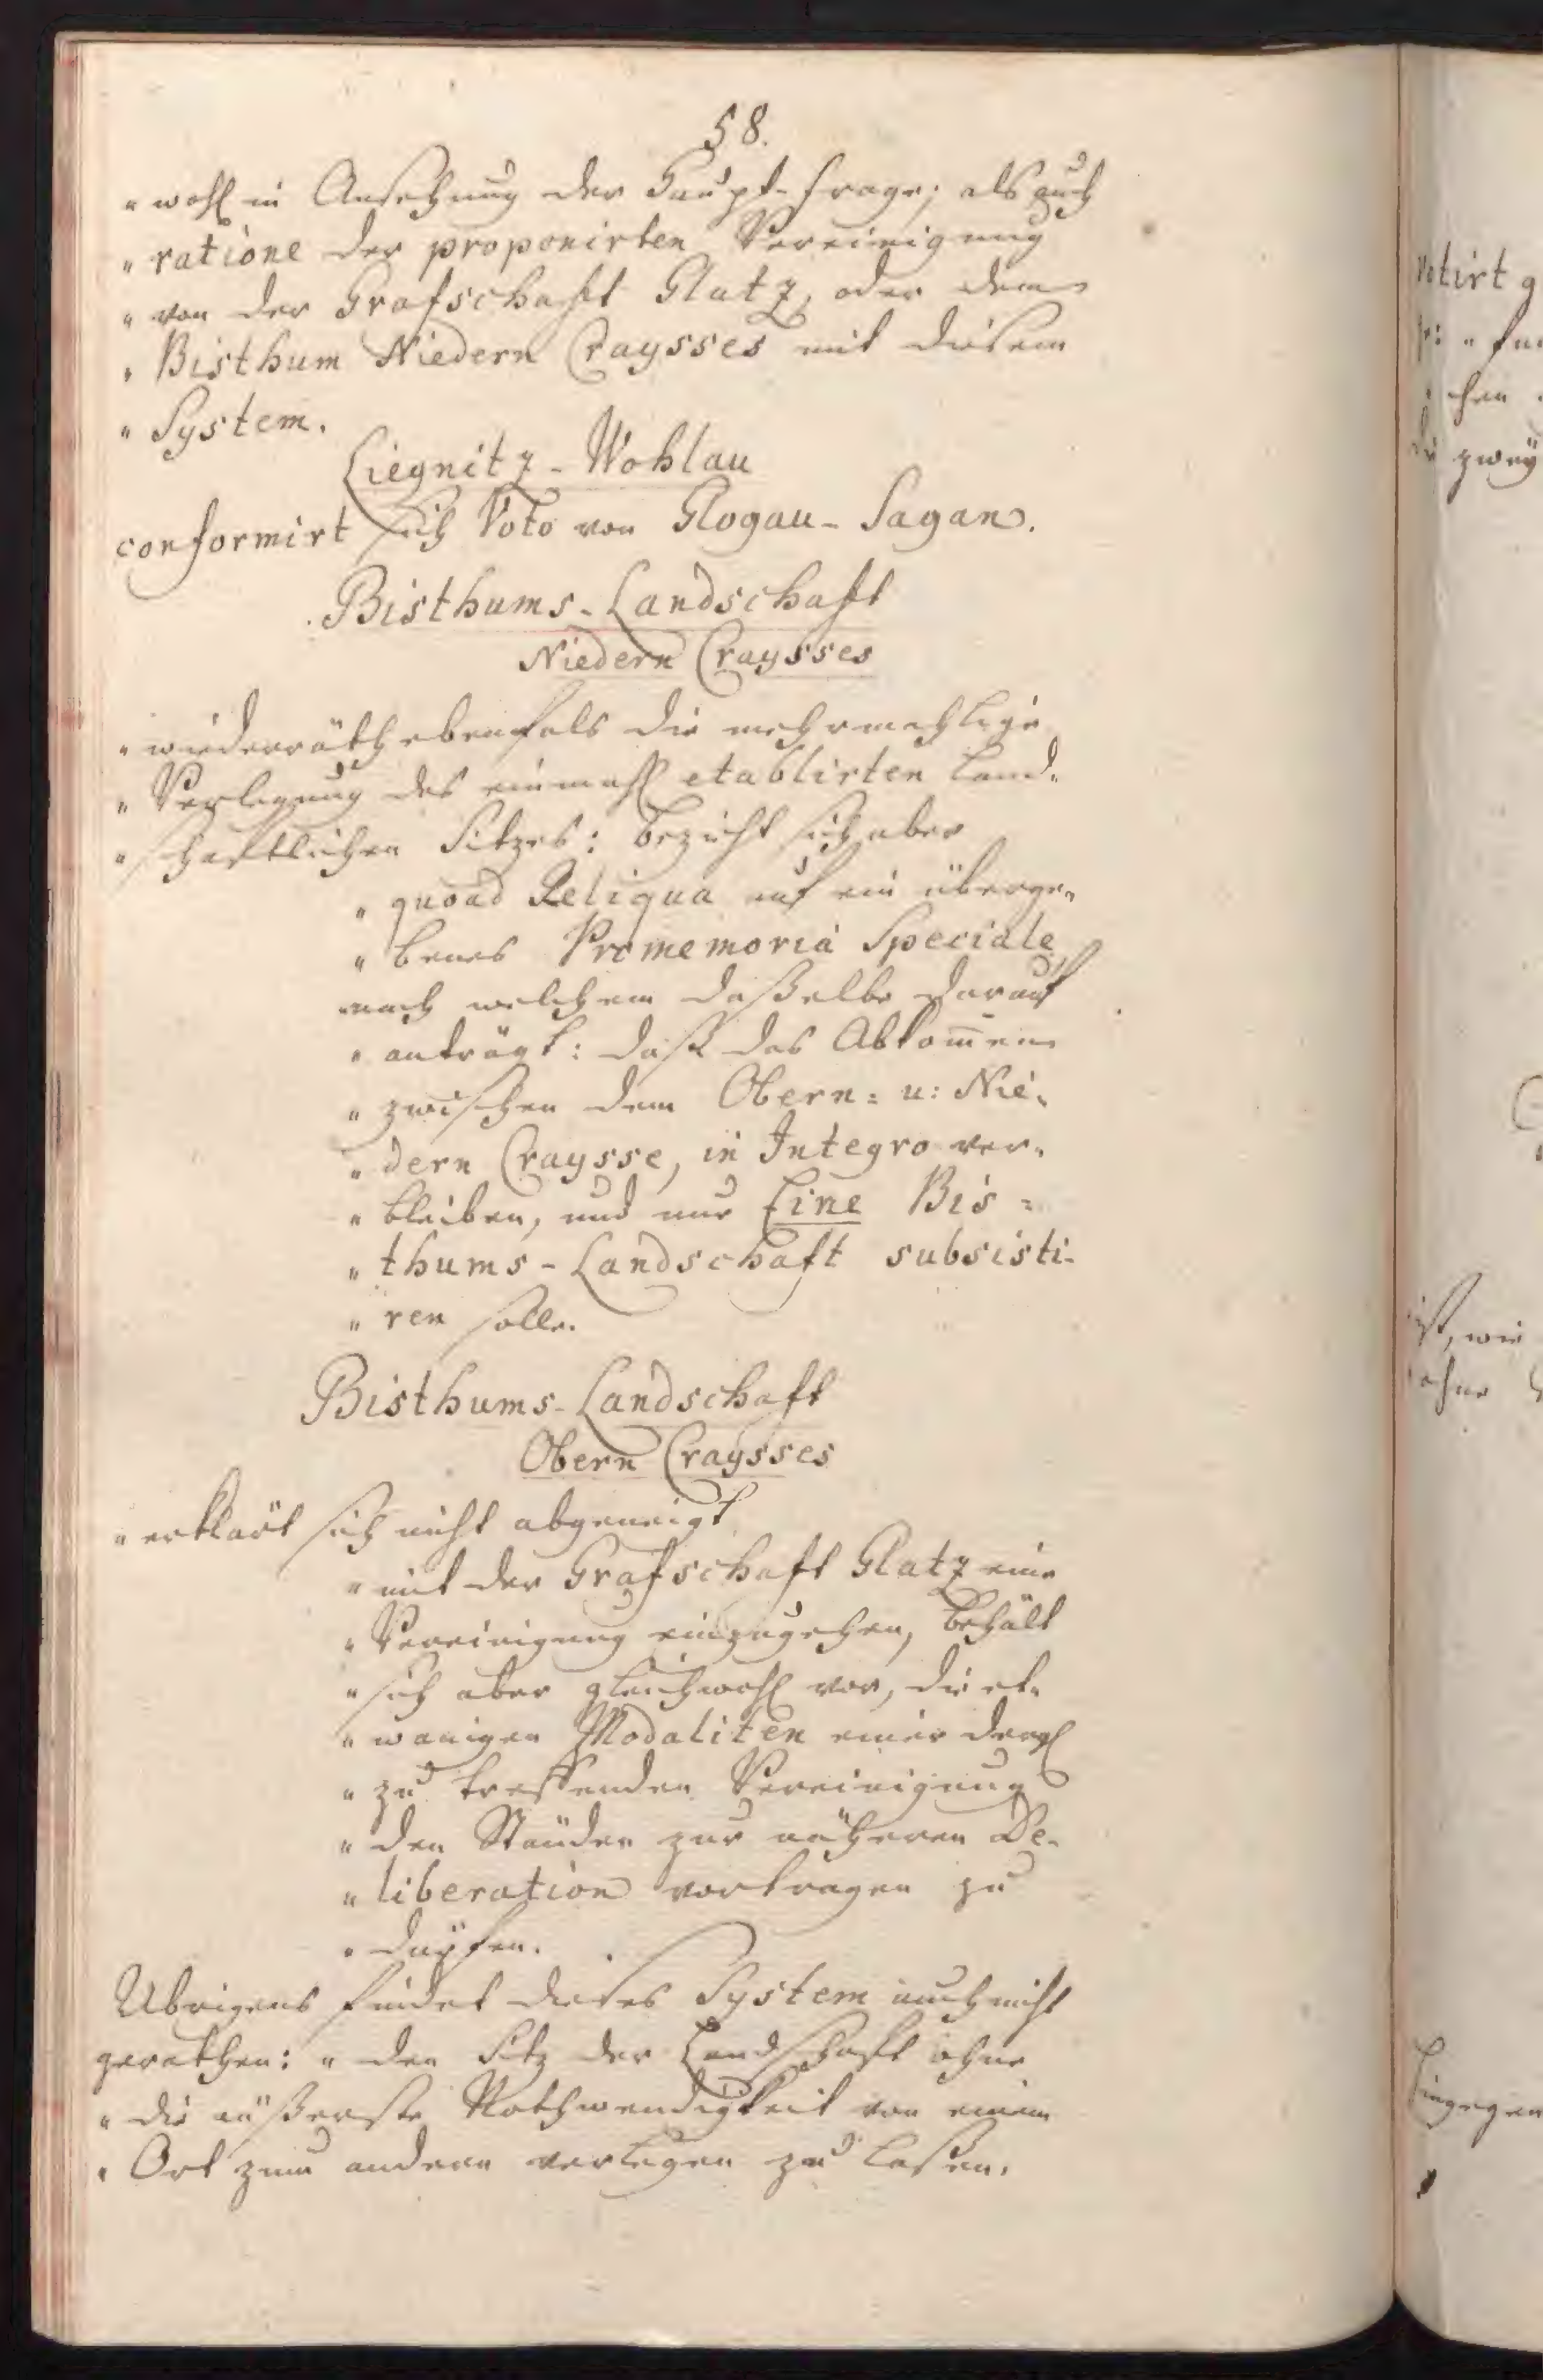 58.
„wohl in Ansehung der Haupt-Frage; als auch
„ratione der proponirten Vereinigung
„von der Grafschafft Glatz, oder dem
„Bisthum Niedern Craysses mit diesem
„System.
Liegnitz-Wohlau
conformirt sich Voto von Glogau-Sagan.
Bisthums-Landschafft
Niedern Craysses
„wiederräth ebenfals die mehrmahlige
„Verlegung des einmahl etablirten Land-
„schaftlichen Sitzes: bezieht sich aber
„quoad Reliqua auf ein überge-
„benes Promemoria Speciale
„nach welchem daßelbe darauf
„anträgt: daß das Abkom̄en
„zwischen dem Obern= u: Nie-
„dern Craysse, in Integro ver-
„bleiben, und nur Eine Bis=
„thums-Landschaft subsisti-
„ren solle.
Bisthums-Landschaft
Obern Craysses
„erklärt sich nicht abgeneigt
„mit der Grafschaft Glatz eine
„Vereinigung einzugehen, behält
„sich aber gleichwohl vor, die et-
„wanigen Modaliten einer dergl
„zu treffenden Vereinigung
„den Ständen zur näheren De-
„liberation vortragen zu
„dürfen.
Übrigens findet dieses System auch nicht
gerathen: „den Sitz der Landschaft ohne
„die äußerste Nothwendigkeit von einem
„Ort zum andern verlegen zu laßen.
votirt g
chen
zwey
ist, wie
ohne